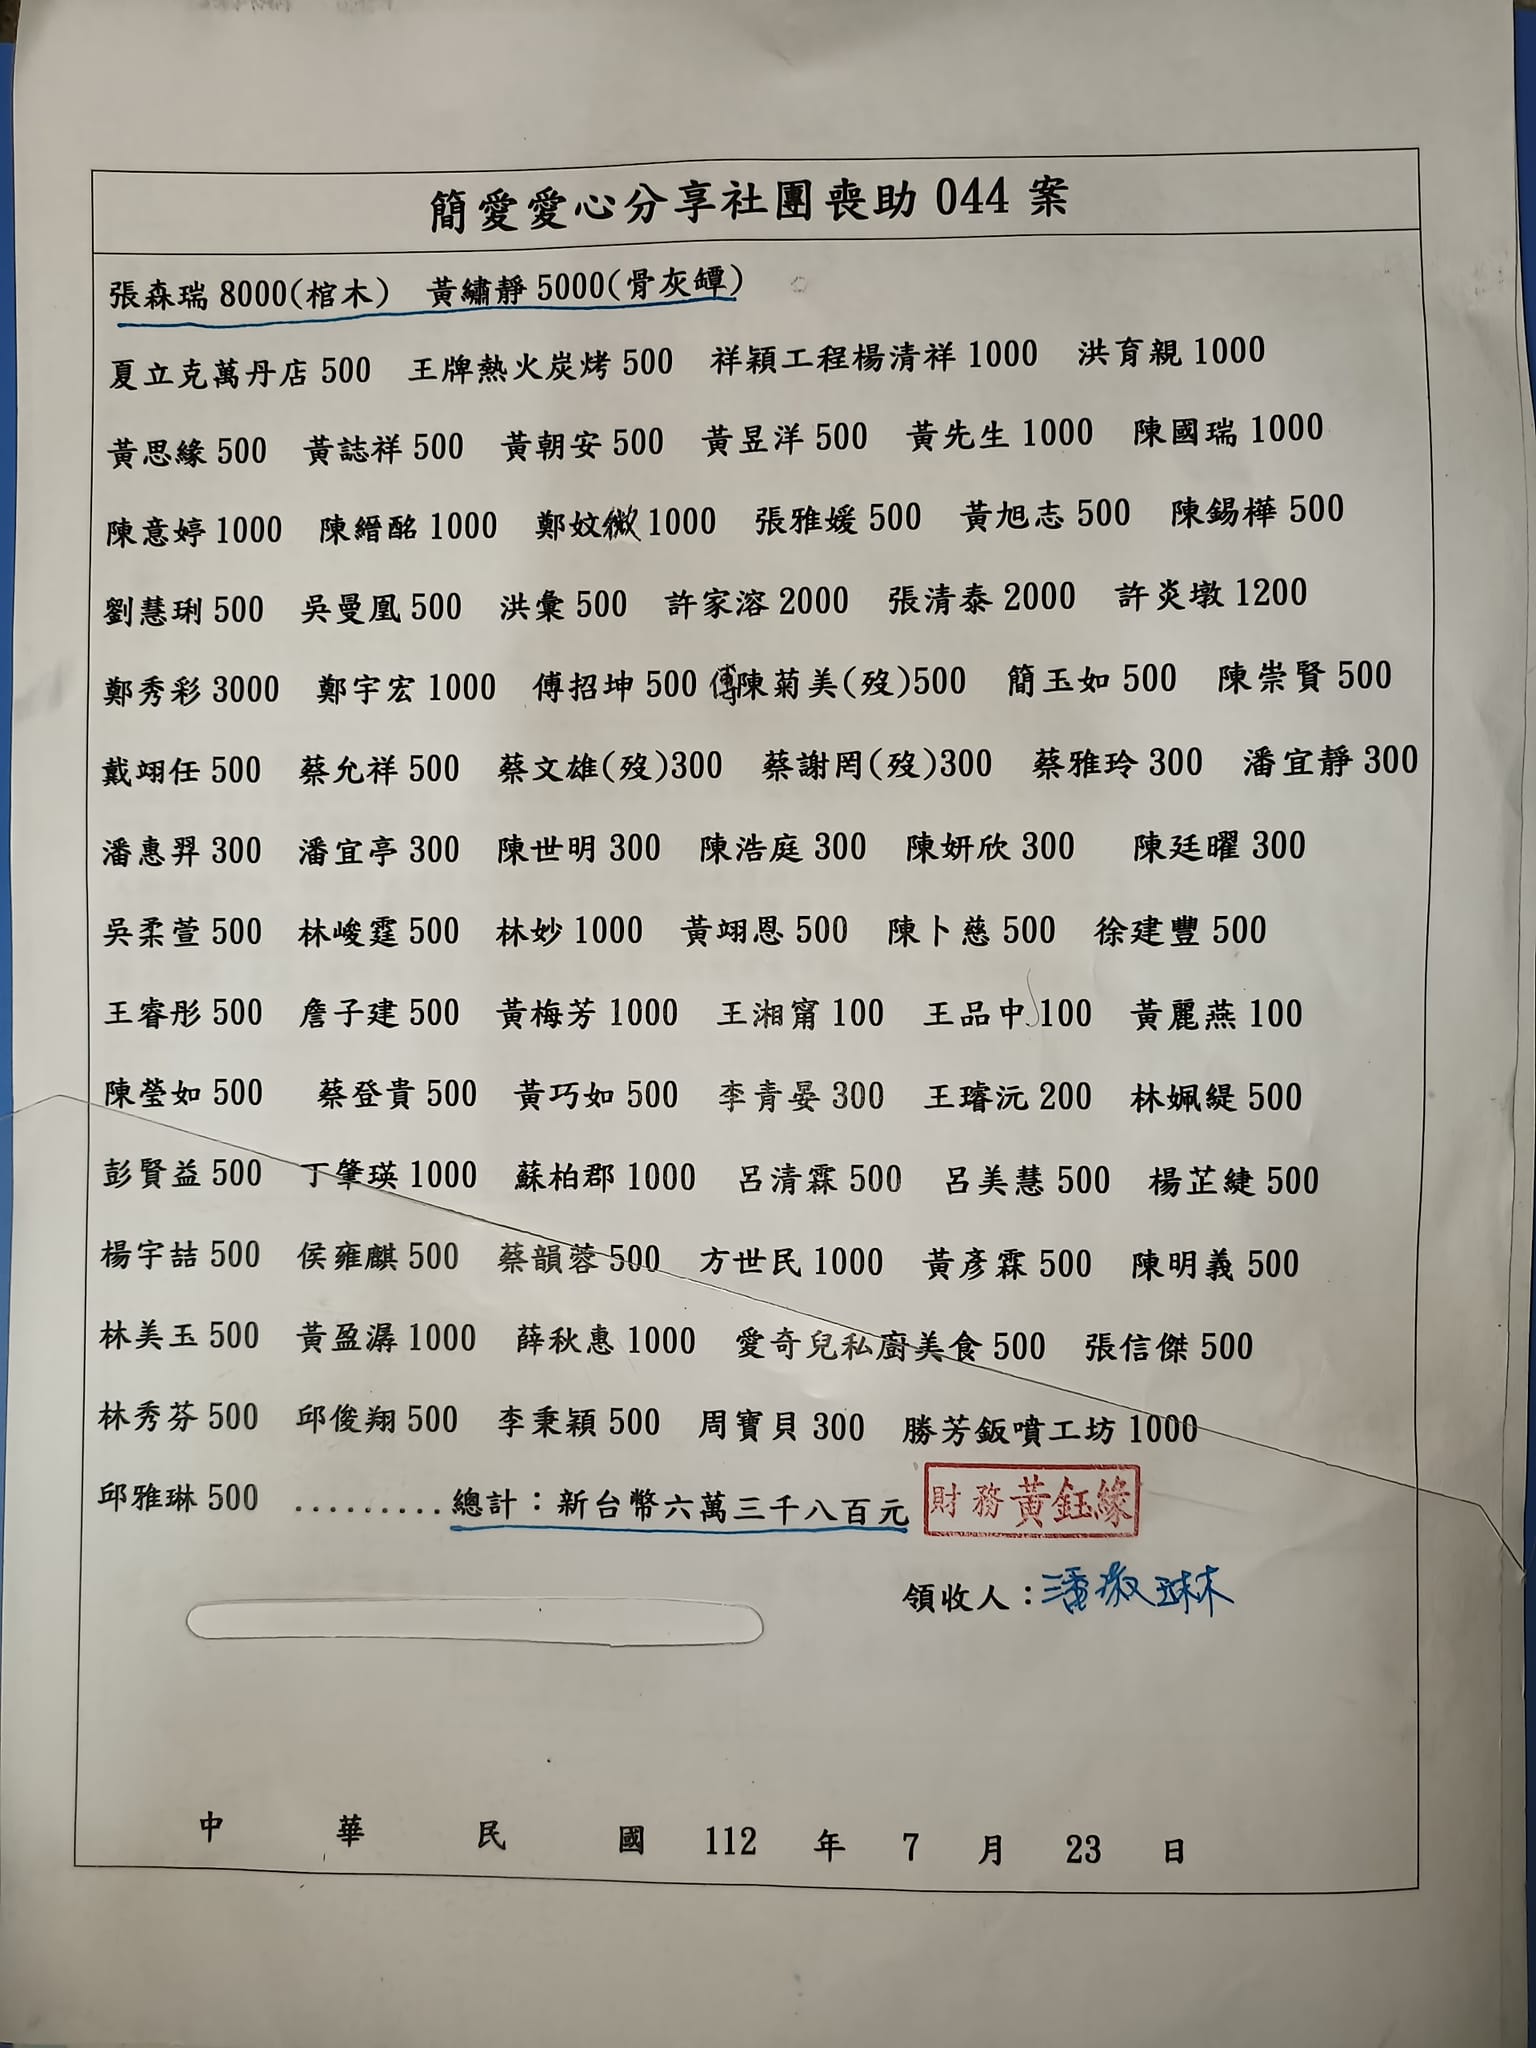 簡愛愛心分享社團喪助 044 案
張森瑞 8000(棺木) 黃繡靜 5000(骨灰罈)
夏立克萬丹店 500 王牌熱火炭烤 500 祥穎工程楊清祥 1000 洪育親 1000
黃思緣 500 黃誌祥 500 黃朝安 500 黃昱洋 500 黃先生 1000 陳國瑞 1000
陳意婷 1000 陳縉酩 1000 鄭妏微 1000 張雅媛 500 黃旭志 500 陳錫樺 500
劉慧琍 500 吳曼凰 500 洪彙 500 許家溶 2000 張清泰 2000 許炎墩 1200
鄭秀彩 3000 鄭宇宏 1000 傅招坤 500 傅陳菊美(歿)500 簡玉如 500 陳崇賢 500
戴翊任 500 蔡允祥 500 蔡文雄(歿)300 蔡謝罔(歿)300 蔡雅玲 300 潘宜靜 300
潘惠羿 300 潘宜亭 300 陳世明 300 陳浩庭 300 陳妍欣 300 陳廷曜 300
吳柔萱 500 林峻霆 500 林妙 1000 黃翊恩 500 陳卜慈 500 徐建豐 500
王睿彤 500 詹子建 500 黃梅芳 1000 王湘甯 100 王品中 100 黃麗燕 100
陳瑩如 500 蔡登貴 500 黃巧如 500 李青晏 300 王璿沅 200 林姵緹 500
彭賢益 500 丁肇瑛 1000 蘇柏郡 1000 呂清霖 500 呂美慧 500 楊芷緁 500
楊宇喆 500 侯雍麒 500 蔡韻蓉 500 方世民 1000 黃彥霖 500 陳明義 500
林美玉 500 黃盈潺 1000 薛秋惠 1000 愛奇兒私廚美食 500 張信傑 500
林秀芬 500 邱俊翔 500 李秉穎 500 周寶貝 300 勝芳鈑噴工坊 1000
邱雅琳 500 .........總計：新台幣六萬三千八百元 財務黃鈺緣
領收人：潘淑琳
中華民國 112 年 7 月 23 日